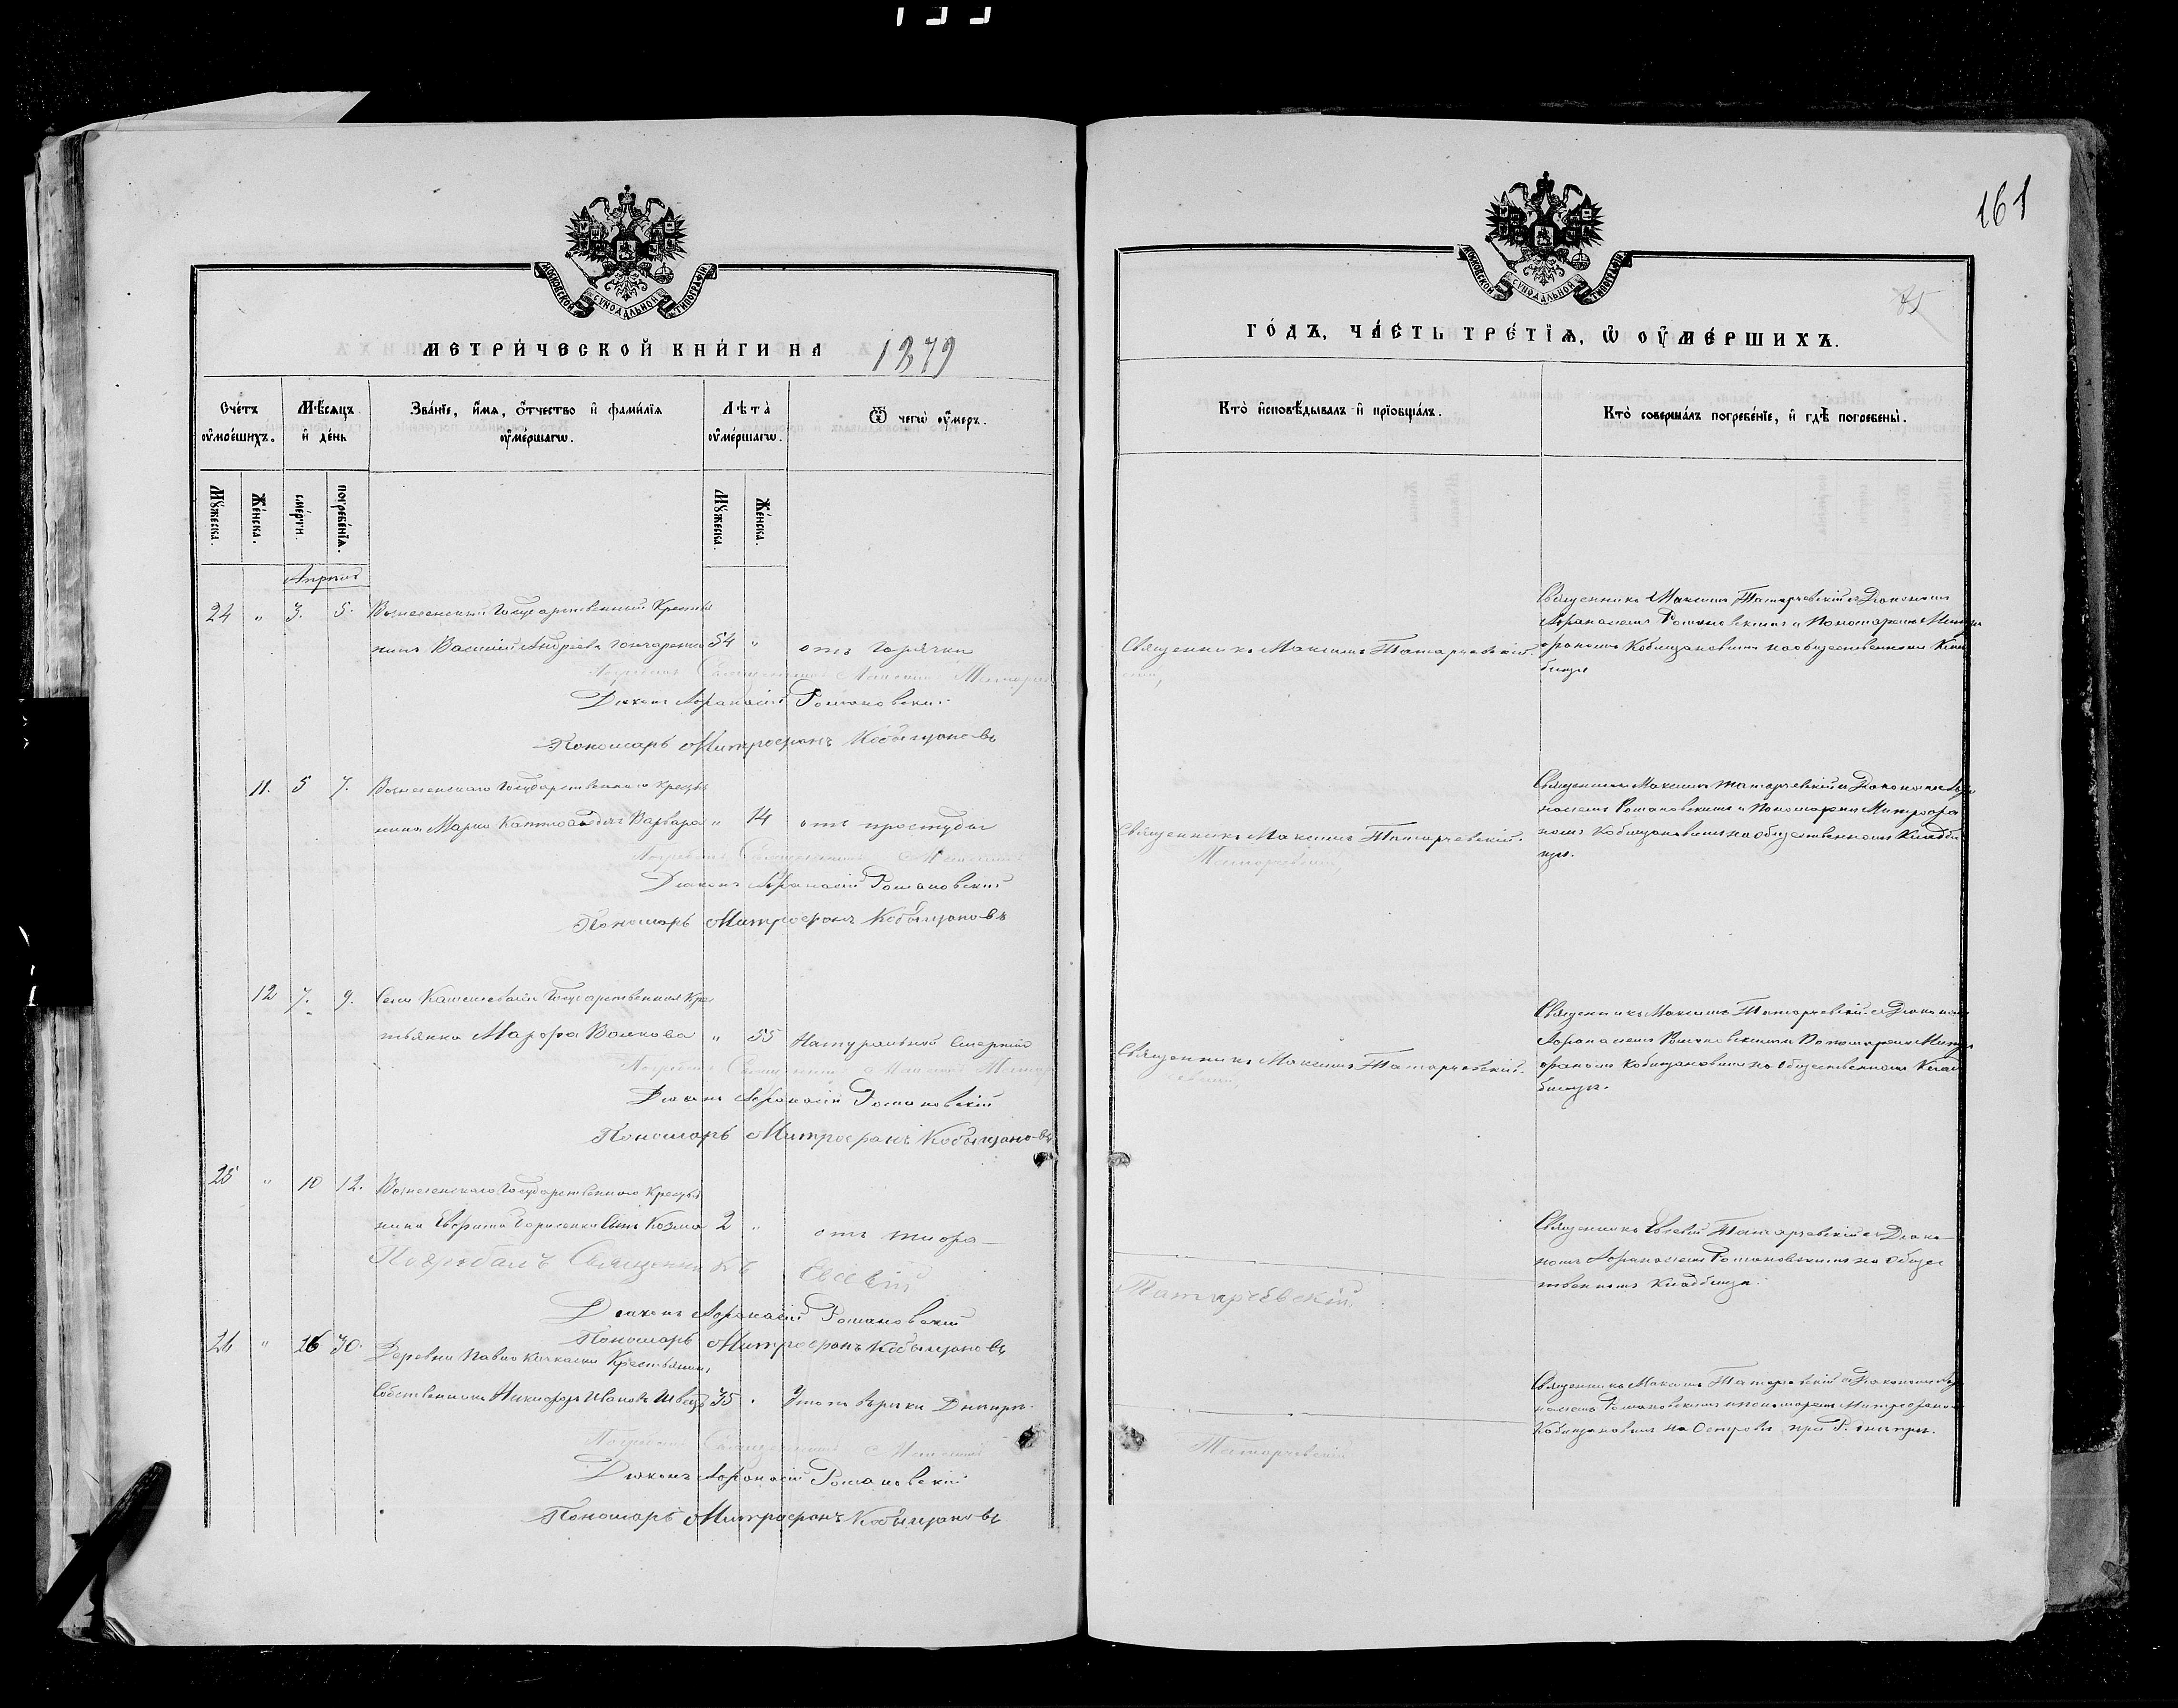 161
МОСКОВСКОЙ СУНОДАЛЬНОЙ ТИПОГРАФІИ
МЕТРИ́ЧЕСКОЙ КНИ́ГИ НА 1879
Сче́тъ ᲂу҆ме́ршихъ.
Мѣ́сяцъ и҆ де́нь
Зва́нїе, и҆́мя, ѻ҆́тчество и҆ фами́лїя ᲂу҆ме́ршагѡ.
Лѣ́та ᲂу҆ме́ршагѡ.
Ѿ чегѡ̀ ᲂу҆́меръ.
Мꙋ́жеска.
Же́нска.
сме́рти.
погребе́нїѧ.
Мꙋ́жеска.
Же́нска.
Апрѣль
24 " 3. 5. Вознесенскій Государственный Крестья
нинъ Василій Андріевъ Гончаренко 54 " отъ горячки
Погребалъ Священникъ Максимъ
Діаконъ Афанасій Романовскій
Пономарь Митрофанъ Кобыщановъ
11. 5 7. Вознесенскаго Государственнаго Крестья
нина Марка дочь Варвара " 14 отъ простуды
Погребалъ Священникъ Максимъ
Діаконъ Афанасій Романовскій
Пономарь Митрофанъ Кобыщановъ
12 7. 9. Села Государственная Кре
тьянка Марфа Волкова " 55 Натуральной Смертію
Погребалъ Священникъ Максимъ
Діаконъ Афанасій Романовскій
Пономарь Митрофанъ Кобыщановъ
25 " 10 12. Вознесенскаго Государственнаго Крестья
нина Борисенка Сынъ Козма 2 " отъ
Погребалъ Священникъ Евсевій
Діаконъ Афанасій Романовскій
Пономарь Митрофанъ Кобыщановъ
26 " 26 30. Деревни Павло Кичкаса Крестьянинъ
Собственникъ Никифоръ Ивановъ Швецъ 35 " Утопъ въ реки Днепръ.
Погребалъ Священникъ Максимъ
Діаконъ Афанасій Романовскій
Пономарь Митрофанъ Кобыщановъ
ГО́ДЪ, ЧА́СТЬ ТРЕ́ТЇѦ, Ѡ҆ ОУ҆МЕ́РШИХЪ.
Кто̀ и҆сповѣ́дывалъ и҆ прїѡбща́лъ.
Кто̀ соверша́лъ погребе́нїе, и҆ гдѣ̀ погребены̀.
Священникъ Максимъ Татарчевскій.
Священникъ Максимъ Татарчевскій съ Діакономъ
Афанасіемъ Романовскимъ и Пономаремъ Митро
фаномъ Кобищановымъ на общественномъ Клад
бище
Священникъ Максимъ Татарчевскій.
Татарчевскій,
Священникъ Максимъ Татарчевскій съ Діакономъ Афа
насіемъ Романовскимъ и Пономаремъ Митрофа
номъ Кобищановымъ на общественномъ Кладби
щѣ.
Священникъ Максимъ Татарчевскій.
Священникъ Максимъ Татарчевскій съ Діакономъ
Афанасіемъ Романовскимъ Пономаремъ Митро
фаномъ Кобищановымъ на общественномъ Клад
бищѣ.
Татарчевскій,
Священникъ Евсевій Татарчевскій съ Діако
номъ Афанасіемъ Романовскимъ на общес
твенномъ Кладбищѣ.
Татарчевскій
Священникъ Максимъ Татарчевскій съ Діакономъ Афа
насіемъ Романовскимъ и Пономаремъ Митрофаномъ
Кобищановымъ на Острове при Р. Днепре.